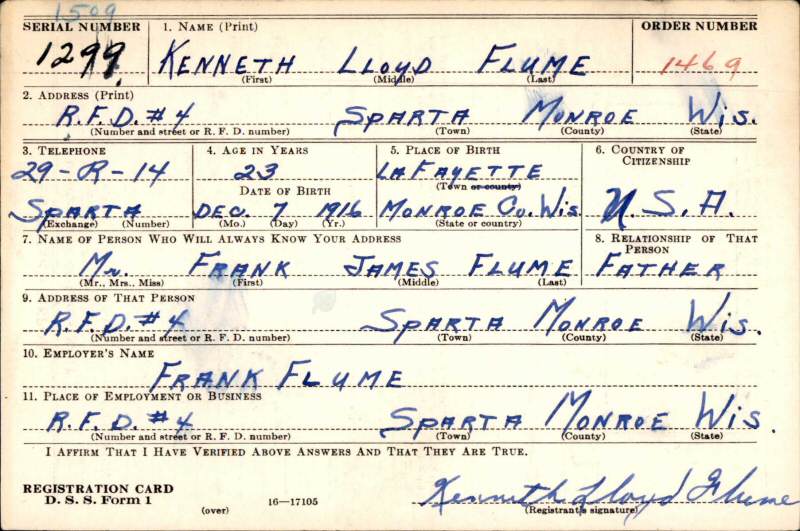 1509
SERIAL NUMBER 1. NAME (Print) ORDER NUMBER
1299 KENNETH LLOYD FLUME 1469
(First) (Middle) (Last)
2. ADDRESS (Print)
R.F.D. #4 SPARTA MONROE WIS.
(Number and street or R. F. D. number) (Town) (County) (State)
3. TELEPHONE 4. AGE IN YEARS 5. PLACE OF BIRTH 6. COUNTRY OF CITIZENSHIP
29-R-14 23 LAFAYETTE
DATE OF BIRTH (Town or county)
SPARTA DEC. 7 1916 MONROE CO. WIS U.S.A.
(Exchange) (Number) (Mo.) (Day) (Yr.) (State or country)
7. NAME OF PERSON WHO WILL ALWAYS KNOW YOUR ADDRESS 8. RELATIONSHIP OF THAT PERSON
Mr. FRANK JAMES FLUME FATHER
(Mr., Mrs., Miss) (First) (Middle) (Last)
9. ADDRESS OF THAT PERSON
R.F.D. #4 SPARTA MONROE WIS.
(Number and street or R. F. D. number) (Town) (County) (State)
10. EMPLOYER'S NAME
FRANK FLUME
11. PLACE OF EMPLOYMENT OR BUSINESS
R.F.D. #4 SPARTA MONROE WIS.
(Number and street or R. F. D. number) (Town) (County) (State)
I AFFIRM THAT I HAVE VERIFIED ABOVE ANSWERS AND THAT THEY ARE TRUE.
REGISTRATION CARD
D. S. S. Form 1 (over) 16-17105 Kenneth Lloyd Flume
(Registrant's signature)